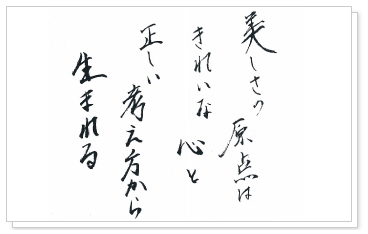 美しさの原点は
きれいな心と
正しい考え方から
生まれる